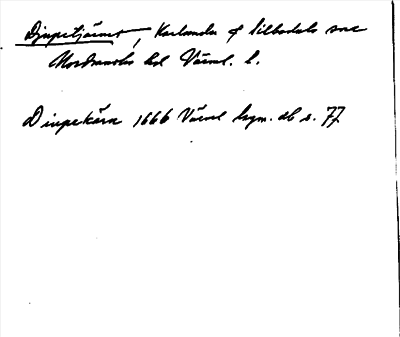 Djupetjärnet, Karlanda o Silbodals snr
Nordmarks hd Värml. l.
Diupekärn 1666 Värml hqm. db s. 77